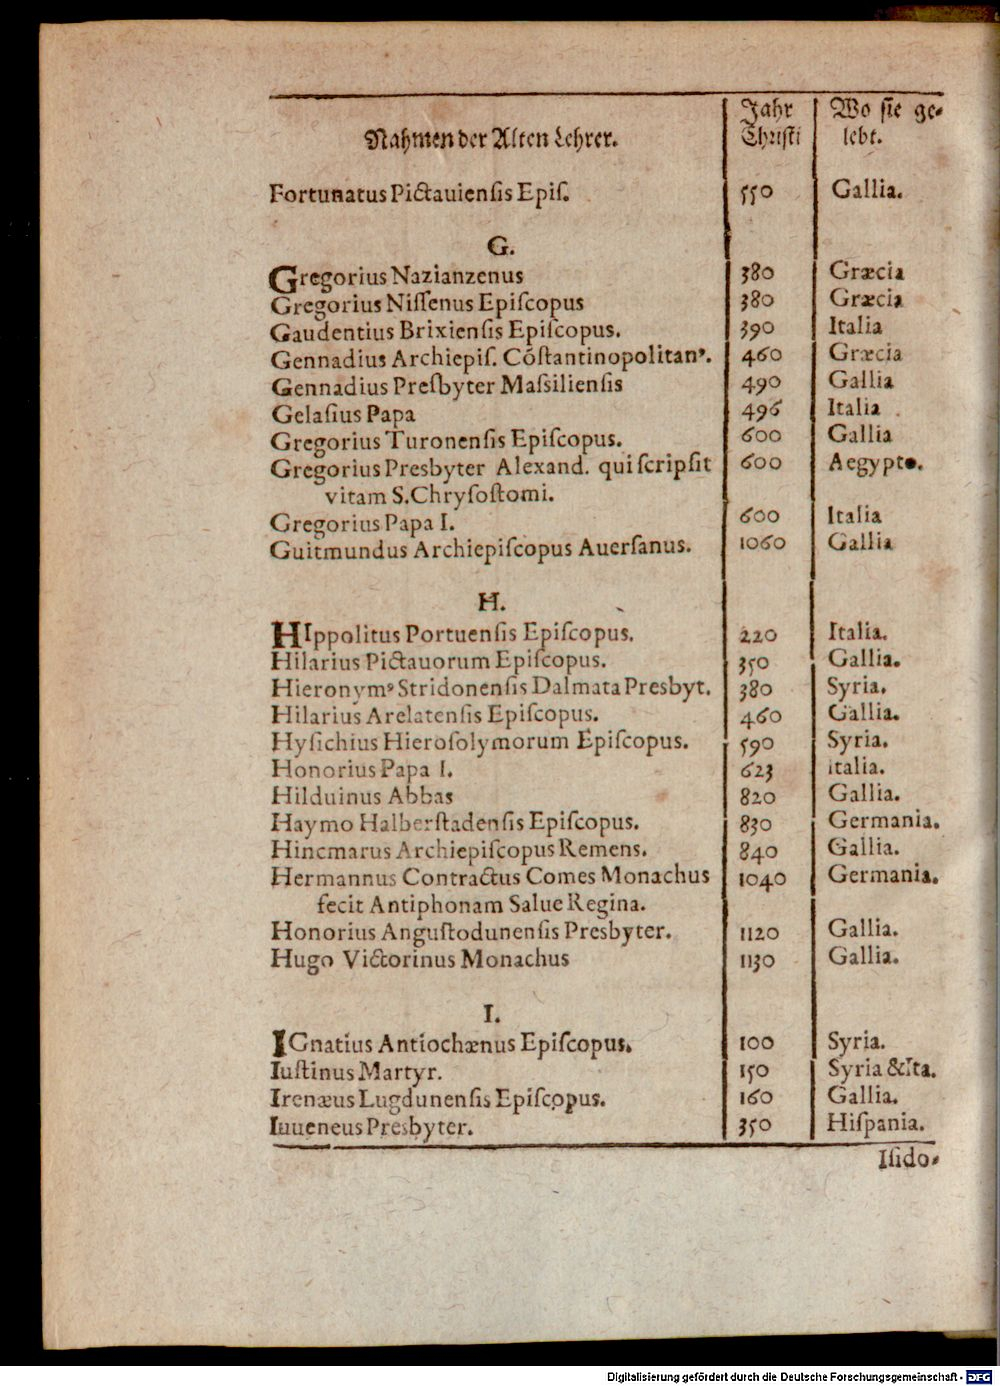 Nahmen der Alten Lehrer. Jahr Christi Wo sie ge⸗ lebt.
Fortunatus Pictauienſis Epiſ. 550 Gallia.
G.
Gregorius Nazianzenus 380 Græcia
Gregorius Niſſenus Epiſcopus 380 Græcia
Gaudentius Brixienſis Epiſcopus. 390 Italia
Gennadius Archiepiſ. Cõſtantinopolitanꝰ. 460 Græcia
Gennadius Preſbyter Maſsilienſis 490 Gallia
Gelaſius Papa 496 Italia
Gregorius Turonenſis Epiſcopus. 600 Gallia
Gregorius Presbyter Alexand. qui ſcripſit 600 Aegypto.
vitam S. Chryſoſtomi.
Gregorius Papa I. 600 Italia
Guitmundus Archiepiſcopus Auerſanus. 1060 Gallia
H.
HIppolitus Portuenſis Epiſcopus. 220 Italia.
Hilarius Pictauorum Epiſcopus. 350 Gallia.
Hieronymꝰ Stridonenſis Dalmata Presbyt. 380 Syria.
Hilarius Arelatenſis Epiſcopus. 460 Gallia.
Hyſichius Hieroſolymorum Epiſcopus. 590 Syria.
Honorius Papa I. 623 italia.
Hilduinus Abbas 820 Gallia.
Haymo Halberſtadenſis Epiſcopus. 830 Germania.
Hincmarus Archiepiſcopus Remens. 840 Gallia.
Hermannus Contractus Comes Monachus 1040 Germania.
fecit Antiphonam Salue Regina.
Honorius Anguſtodunenſis Presbyter. 1120 Gallia.
Hugo Victorinus Monachus 1130 Gallia.
I.
IGnatius Antiochænus Epiſcopus. 100 Syria.
Iuſtinus Martyr. 150 Syria & Ita.
Irenæus Lugdunenſis Epiſcopus. 160 Gallia.
Iuueneus Presbyter. 350 Hiſpania.
Iſido⸗
Digitalisierung gefördert durch die Deutsche Forschungsgemeinschaft - DFG